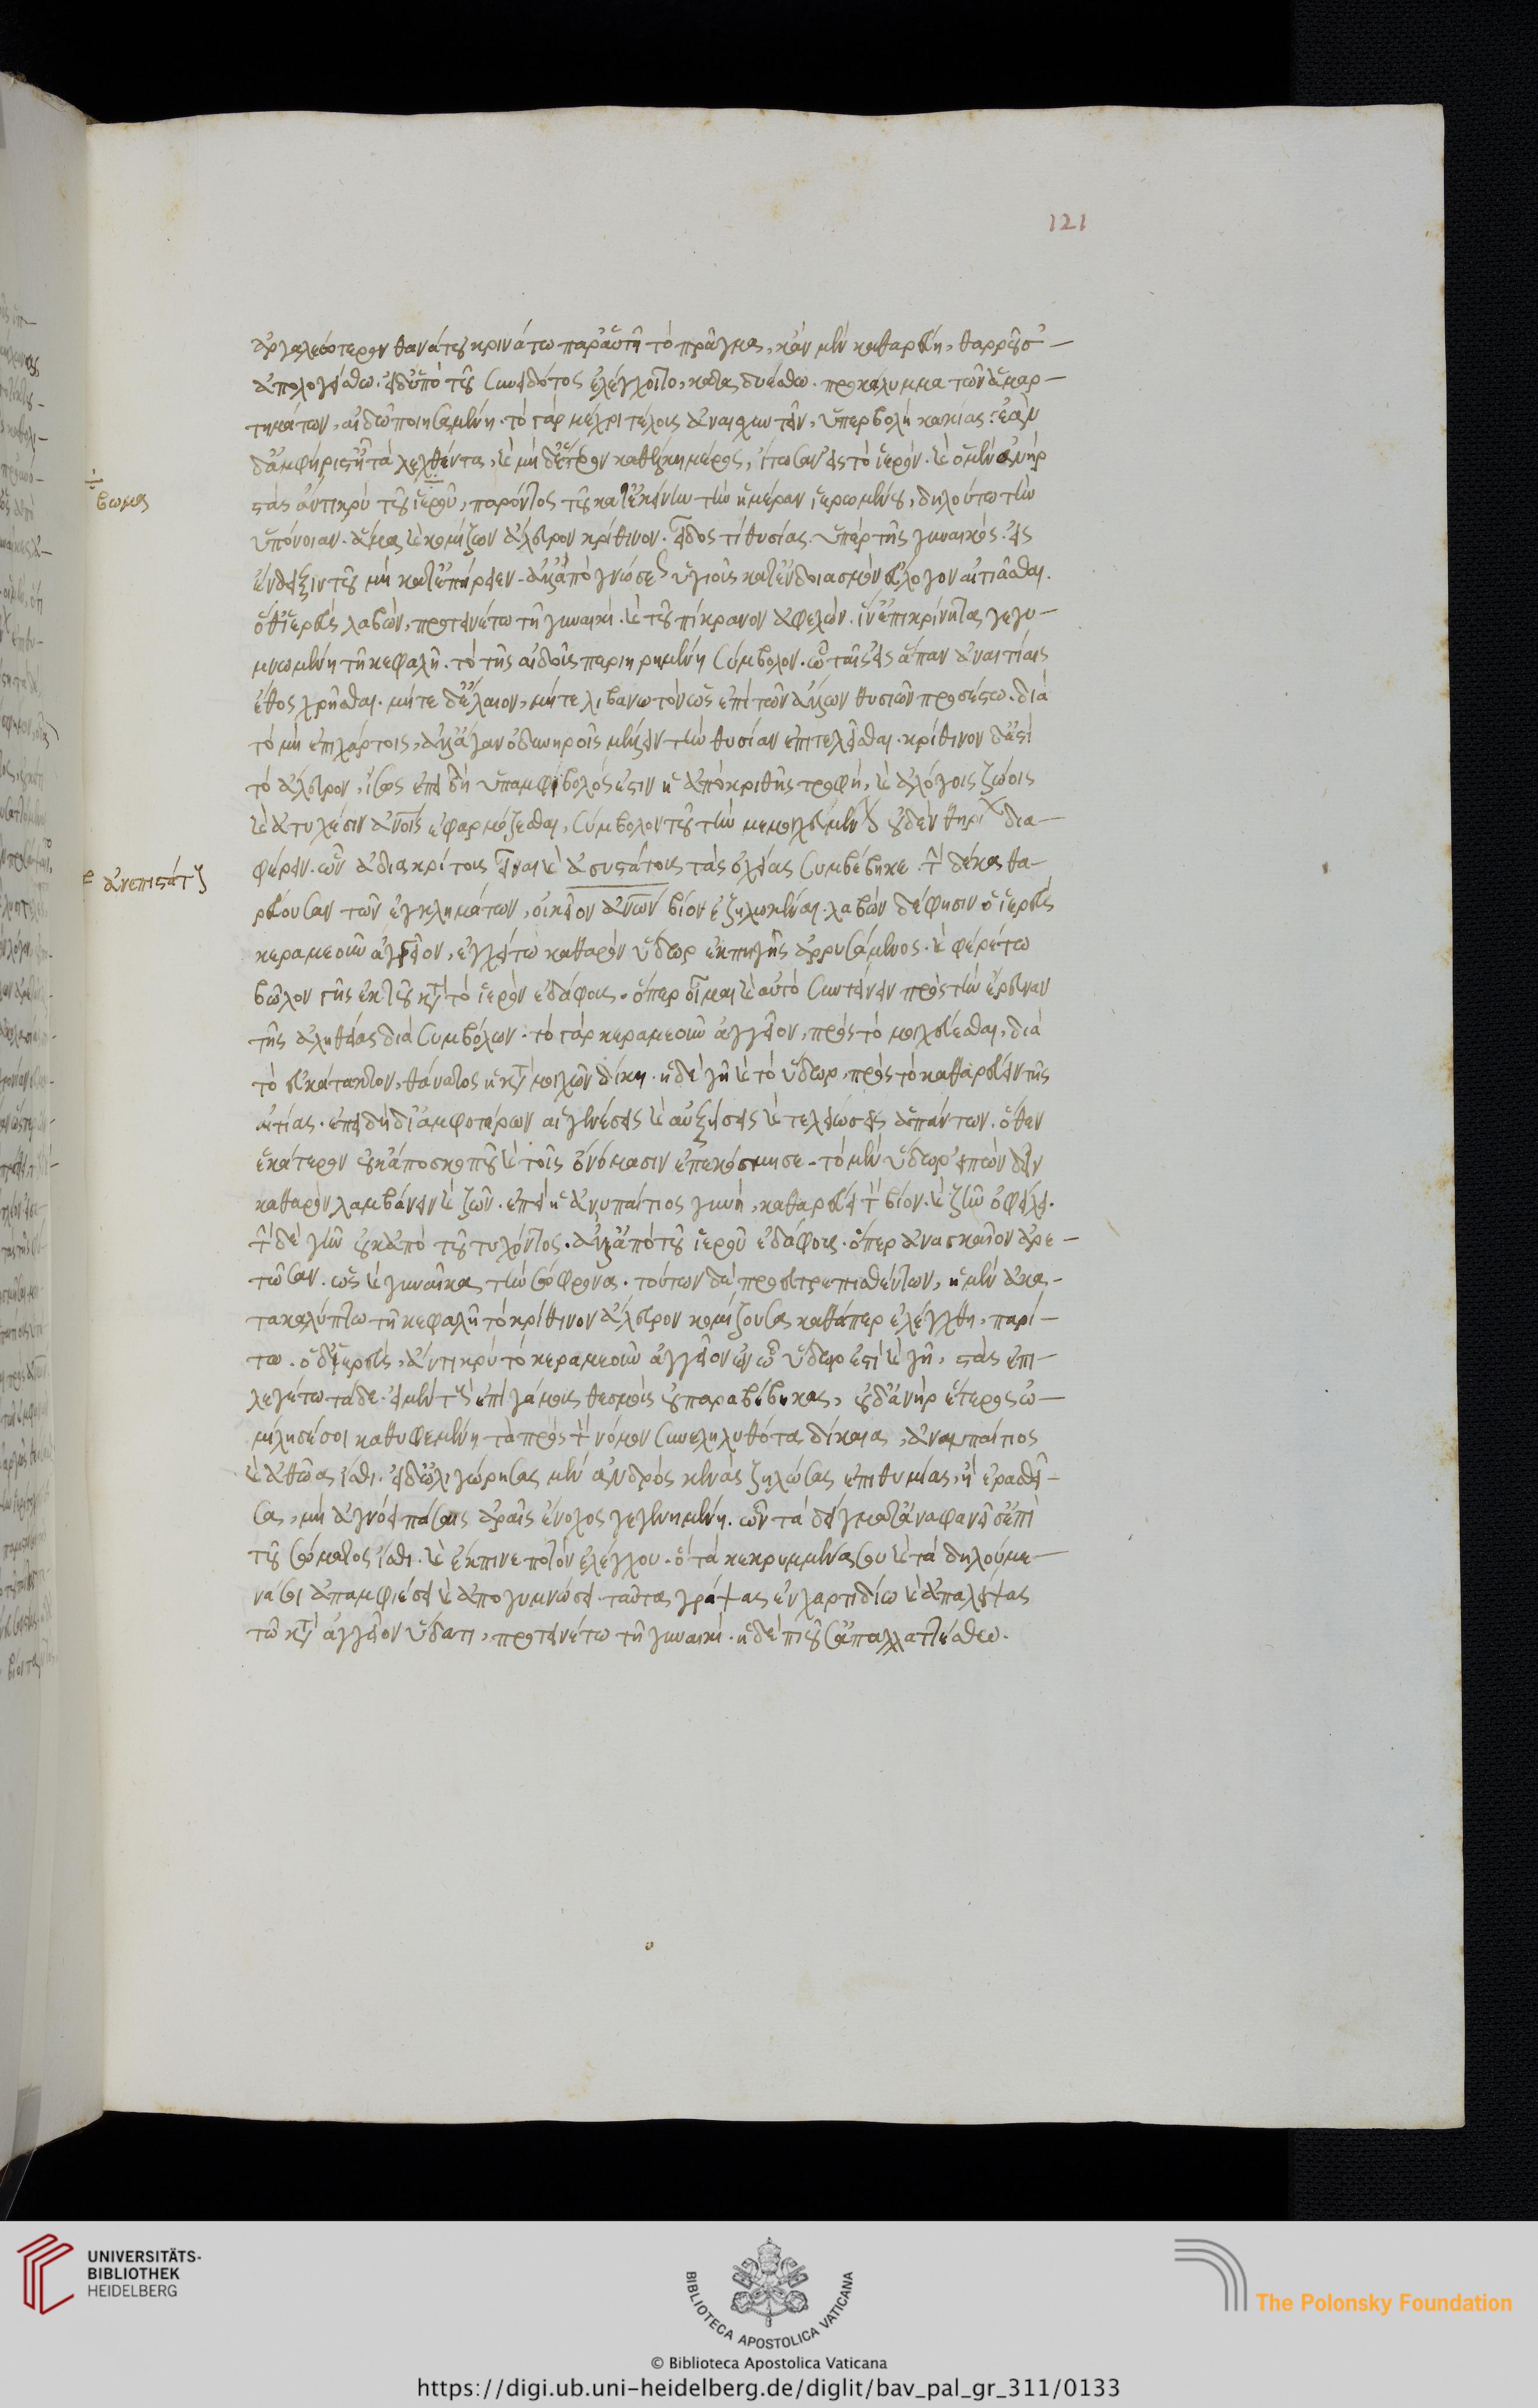 ἀργαλεώτερον θανάτου κρινάτω παρ' αὐτῇ τὸ πρᾶγμα, κἂν μὲν καθαρεύῃ, θαρροῦσ' –
ἀπολογείσθω. εἰ δ' ὑπὸ τοῦ συνειδότος ἐλέγχοιτο, καταδυέσθω. προκάλυμμα τῶν ἁμαρ–
τημάτων, αἰδῶ ποιησαμένη. τὸ γὰρ μέχρι τέλους ἀναισχυντεῖν, ὑπερβολὴ κακίας. ἐὰν
δ' ἀμφήριστ' ᾖ τὰ λεχθέντα, καὶ μὴ δ' ἕτερον καθέλκῃ μέρος, ἴτωσαν εἰς τὸ ἱερόν. καὶ ὁ μὲν ἀνὴρ
στὰς ἀντικρὺ τοῦ ἱεροῦ, παρόντος τοῦ κατ' ἐκείνην τὴν ἡμέραν ἱερωμένου, δηλούτω τὴν
βωμοῦ
ὑπόνοιαν. ἅμα καὶ κομίζων ἄλευρον κρίθινον. εἶδος τι θυσίας ὑπὲρ τῆς γυναικός. εἰς
ἔνδειξιν τοῦ μὴ κατ' ἐπήρειαν ἀλλ' ἀπὸ γνώσεως ὑγιοῦς κατ' ἐνδοιασμὸν εὔλογον αἰτιᾶσθαι.
ὁ δ' ἱερεὺς λαβὼν, προτεινέτω τῇ γυναικί. καὶ τοὐπίκρανον ἀφελών. ἵν' ἐπικρίνηται γεγυ–
μνωμένῃ τῇ κεφαλῇ. τὸ τῆς αἰδοῦς παριῃρημένη σύμβολον. ᾧ ταῖς εἰς ἅπαν ἀναιτίαις
ἔθος χρῆσθαι. μήτε δ' ἔλαιον, μήτε λιβανωτὸν ὡς ἐπὶ τῶν ἄλλων θυσιῶν προσέστω. διὰ
τὸ μὴ ἐπὶ χάρτοις, ἀλλ' ἄγαν ὀδυνηροῖς μέλλειν τὴν θυσίαν ἐπιτελεῖσθαι. κρίθινον δ' ἐστὶ
τὸ ἄλευρον, ἴσως ἐπειδὴ ὑπαμφίβολός ἐστιν ἡ ἀπὸ κριθῆς τροφὴ, καὶ ἀλόγοις ζώοις
καὶ ἀτυχέσιν ἀνοις ἐφαρμόζεσθαι, σύμβολον τοῦ τὴν μεμοιχευμένην οὐδὲν θηρίων δια–
φέρειν. ὧν ἀδιακρίτους εἶναι καὶ ἀσυστάτους τὰς ὀχείας συμβέβηκε. τὴν δὲ καθα–
ἀνεπιστάτους
ρεύουσαν τῶν ἐγκλημάτων, οἰκεῖον ἀνων βίον ἐζηλωκέναι. λαβὼν δέ φησιν ὁ ἱερεὺς
κεραμεοῦν ἀγγεῖον, ἐγχείτω καθαρὸν ὕδωρ ἐκ πηγῆς ἀρρυσάμενος. καὶ φερέτω
βῶλον γῆς ἐκ τοῦ κατὰ τὸ ἱερὸν ἐδάφους. ἅπερ οἶμαι καὶ αὐτὸ συντείνειν πρὸς τὴν ἔρευναν
τῆς ἀληθείας διὰ συμβόλων. τὸ γὰρ κεραμεοῦν ἀγγεῖον, πρὸς τὸ μοιχεύεσθαι, διὰ
τὸ εὐκάτακτον, θάνατος ἡ κατὰ μοιχῶν δίκη. ἡ δὲ γῆ καὶ τὸ ὕδωρ, πρὸς τὸ καθαρεύειν τῆς
αἰτίας. ἐπειδὴ δι' ἀμφοτέρων αἱ γενέσεις καὶ αὐξήσεις καὶ τελειώσεις ἁπάντων. ὅθεν
ἑκάτερον οὐκ ἀπὸ σκοποῦ καὶ τοῖς ὀνόμασιν ἐπεκόσμησε. τὸ μὲν ὕδωρ εἰπὼν δεῖν
καθαρὸν λαμβάνειν καὶ ζῶν. ἐπεὶ ἡ ἀνυπαίτιος γυνὴ, καθαρεύει τὸν βίον. καὶ ζῆν ὀφείλει.
τὴν δὲ γῆν οὐκ ἀπὸ τοῦ τυχόντος. ἀλλ' ἀπὸ τοῦ ἱεροῦ ἐδάφους. ὅπερ ἀναγκαῖον ἀρε–
τῶσαν. ὡς καὶ γυναῖκα τὴν σώφρονα. τούτων δὲ προευτρεπισθέντων, ἡ μὲν ἀκα–
τακαλύπτῳ τῇ κεφαλῇ τὸ κρίθινον ἄλευρον κομίζουσα καθάπερ ἐλέχθη, παρί–
τω. ὁ δ' ἱερεὺς, ἀντικρὺ τὸ κεραμεοῦν ἀγγεῖον ἐν ᾧ ὕδωρ ἐστὶ καὶ γῆ, στὰς ἐπι–
λεγέτω τάδε. εἰ μὲν τοὺς ἐπὶ γάμοις θεσμοὺς οὐ παραβέβηκας, οὐδ' ἀνὴρ ἕτερος ὡ–
μίλησέ σοι καθυφεμένῃ τὰ πρὸς τὸν νόμῳ συνεληλυθότα δίκαια, ἀνυπαίτιος
καὶ ἀθῷος ἴσθι. εἰ δ' ὠλιγώρησας μὲν ἀνδρὸς κενὰς ζηλώσας ἐπιθυμίας, ἢ ἐρασθεῖ–
σα, μὴ ἀγνόει πάσαις ἀραῖς ἔνοχος γεγενημένη. ὧν τὰ δείγματ' ἀναφανεῖς ἐπὶ
τοῦ σώματος ἴσθι. καὶ ἔκπινε ποτὸν ἐλέγχου. ὃ τὰ κεκρυμμένα σου καὶ τὰ δηλούμε–
νά σοι ἀπαμφιέσει καὶ ἀπογυμνώσει. ταῦτα γράψας ἐν χαρτιδίῳ καὶ ἀπαλείψας
τῷ κατὰ ἀγγεῖον ὕδατι, προτεινέτω τῇ γυναικί. ἡ δὲ πιοῦσ' ἀπαλλαττέσθω.
121
UNIVERSITÄTS-
BIBLIOTHEK
HEIDELBERG
BIBLIOTECA APOSTOLICA VATICANA
The Polonsky Foundation
© Biblioteca Apostolica Vaticana
https://digi.ub.uni-heidelberg.de/diglit/bav_pal_gr_311/0133